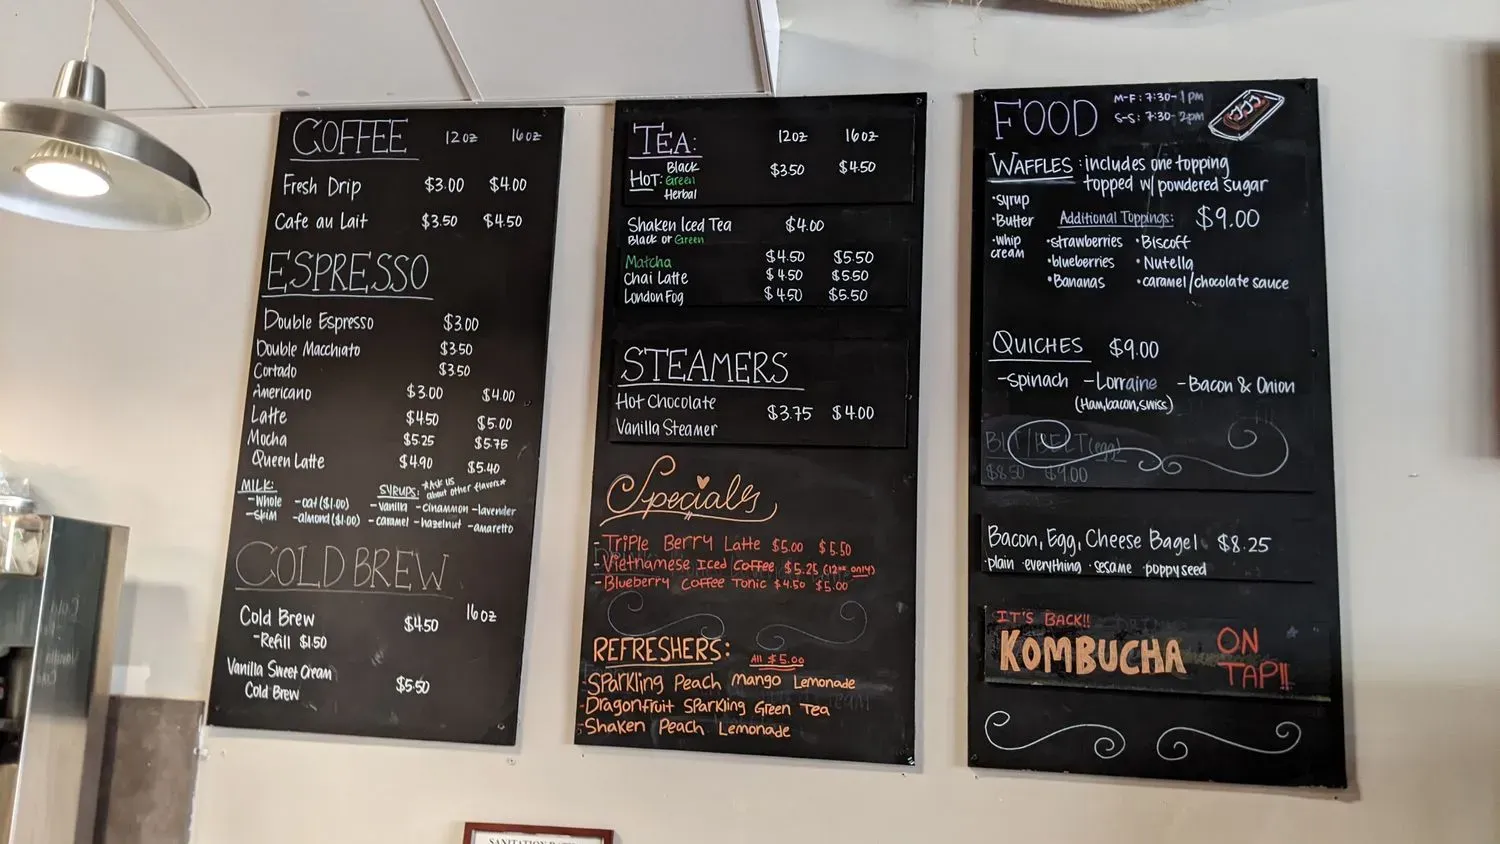 COFFEE 12oz 16oz
Fresh Drip $3.00 $4.00
Cafe au Lait $3.50 $4.50
ESPRESSO
Double Espresso $3.00
Double Macchiato $3.50
Cortado $3.50
Americano $3.00 $4.00
Latte $4.50 $5.00
Mocha $5.25 $5.75
Queen Latte $4.90 $5.40
MILK:
-whole -oat ($1.00)
-skim -almond ($1.00)
SYRUPS: *Ask us about other flavors*
-vanilla -cinammon -lavender
-caramel -hazelnut -amaretto
COLD BREW
16oz
Cold Brew $4.50
-Refill $1.50
Vanilla Sweet Cream
Cold Brew $5.50
TEA: 12oz 16oz
HOT: Black Green Herbal $3.50 $4.50
Shaken Iced Tea $4.00
Black or Green
Matcha $4.50 $5.50
Chai Latte $4.50 $5.50
London Fog $4.50 $5.50
STEAMERS
Hot Chocolate
Vanilla Steamer $3.75 $4.00
Specials
-Triple Berry Latte $5.00 $5.50
-Vietnamese Iced Coffee $5.25 (12oz only)
-Blueberry Coffee Tonic $4.50 $5.00
REFRESHERS: All $5.00
-Sparkling Peach Mango Lemonade
-Dragonfruit Sparkling Green Tea
-Shaken Peach Lemonade
FOOD
M-F: 7:30-1pm
S-S: 7:30-2pm
WAFFLES: includes one topping
topped w/ powdered sugar
$9.00
•syrup
•Butter
•whip cream
Additional Toppings:
•strawberries •Biscoff
•blueberries •Nutella
•Bananas •caramel/chocolate sauce
QUICHES $9.00
-spinach -Lorraine -Bacon & Onion
(Ham, bacon, swiss)
BLT/BELT (egg)
$8.50 $9.00
Bacon, Egg, Cheese Bagel $8.25
•plain •everything •sesame •poppyseed
IT'S BACK!!
KOMBUCHA ON TAP!!